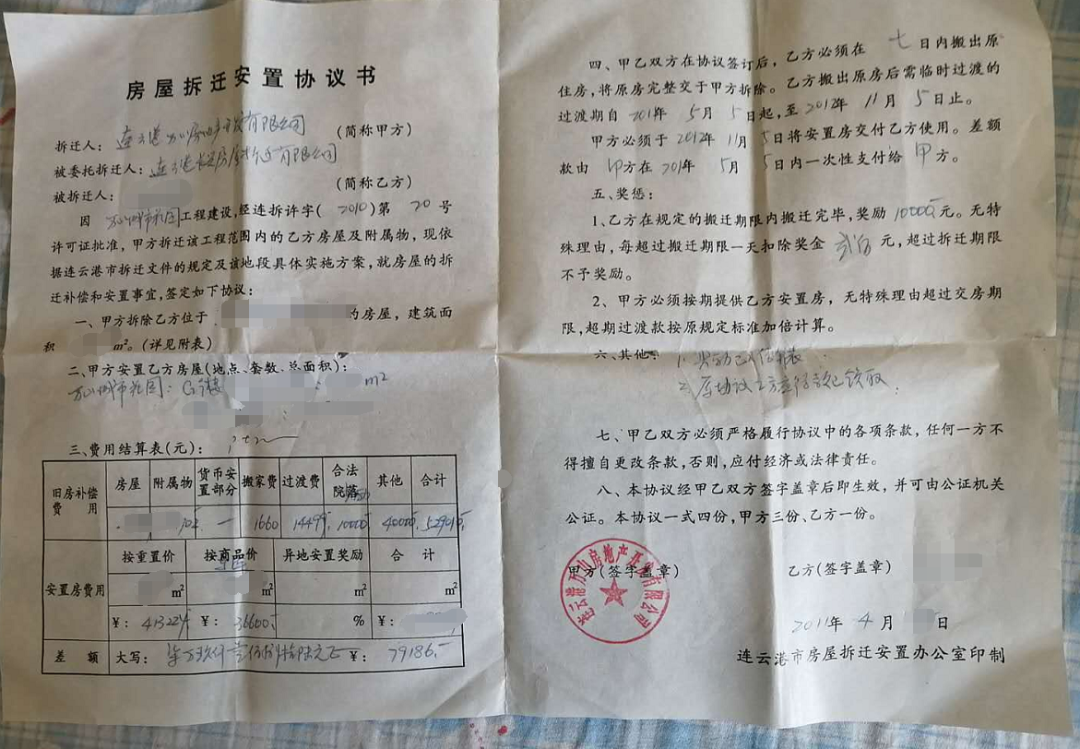 房屋拆迁安置协议书
拆迁人：连云港万山房地产开发有限公司（简称甲方）
被委托拆迁人：连云港 房屋拆迁有限公司
被拆迁人：（简称乙方）
因 城市花园工程建设，经连拆许字（2010）第20号
许可证批准，甲方拆迁该工程范围内的乙方房屋及附属物，现依
据连云港市拆迁文件的规定及该地段具体实施方案，就房屋的拆
迁补偿和安置事宜，签定如下协议：
一、甲方拆除乙方位于 的房屋，建筑面
积 m²。（详见附表）
二、甲方安置乙方房屋（地点、套数、总面积）：
城市花园：G m²
三、费用结算表（元）：
旧房补偿费用 房屋 附属物 货币安置部分 搬家费 过渡费 合法院落 其他 合计
一 1660 14499 10000 40000
安置房费用 按重置价 按商品价 异地安置奖励 合计
m² m² m² m²
¥： ¥：36600 % ¥：
差额 大写： ¥：79186
四、甲乙双方在协议签订后，乙方必须在七日内搬出原
住房，将原房完整交于甲方拆除。乙方搬出原房后需临时过渡的
过渡期自2011年5月5日起，至2012年11月5日止。
甲方必须于2012年11月5日将安置房交付乙方使用。差额
款由 方在2011年5月5日内一次性支付给甲方。
五、奖惩：
1、乙方在规定的搬迁期限内搬迁完毕，奖励10000元。无特
殊理由，每超过搬迁期限一天扣除奖金贰百元，超过拆迁期限
不予奖励。
2、甲方必须按期提供乙方安置房，无特殊理由超过交房期
限，超期过渡款按原规定标准加倍计算。
六、其他：1.
2.原协议 已领取.
七、甲乙双方必须严格履行协议中的各项条款，任何一方不
得擅自更改条款，否则，应付经济或法律责任。
八、本协议经甲乙双方签字盖章后即生效，并可由公证机关
公证。本协议一式四份，甲方三份、乙方一份。
连云港万山房地产开发有限公司
甲方（签字盖章） 乙方（签字盖章）
2011年4月 日
连云港市房屋拆迁安置办公室印制